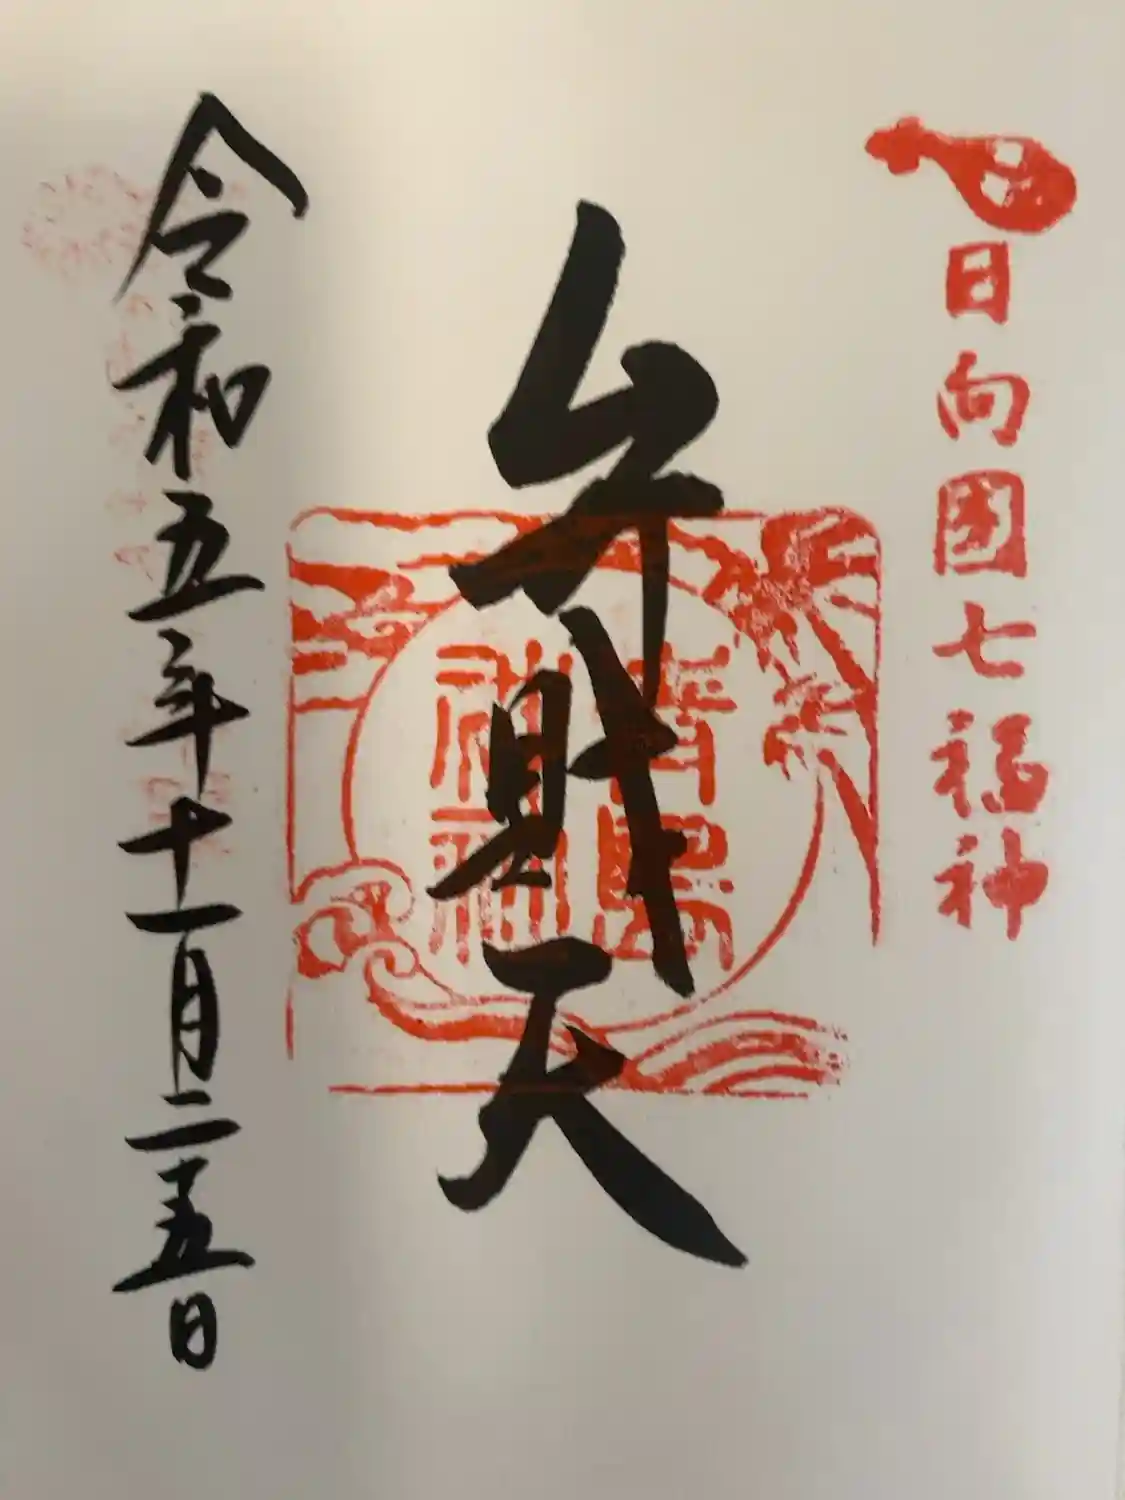 日向國七福神
弁財天
青島
令和五年十一月二十五日